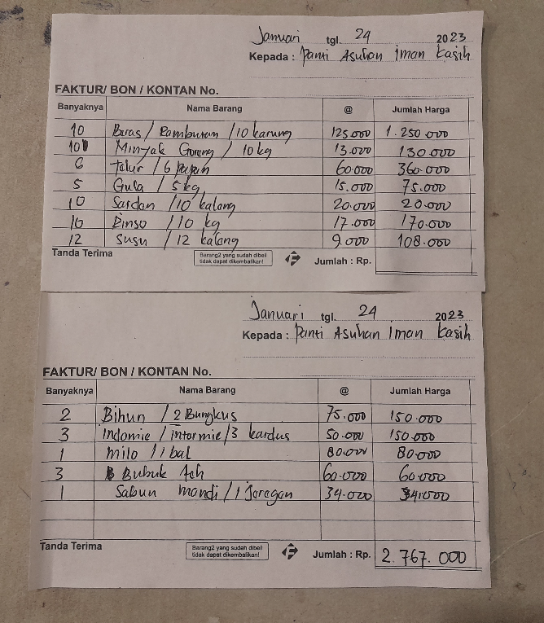 Januari tgl. 24 2023
Kepada : Panti Asuhan Iman Kasih
FAKTUR/ BON / KONTAN No.
Banyaknya Nama Barang @ Jumlah Harga
10 Beras / Rambutan / 10 karung 125.000 1.250.000
10 Minyak Goreng / 10 kg 13.000 130.000
6 Telur / 6 papan 60.000 360.000
5 Gula / 5 kg 15.000 75.000
10 Sardan / 10 kalang 20.000 20.000
10 Rinso / 10 kg 17.000 170.000
12 Susu / 12 kalang 9.000 108.000
Tanda Terima Barang2 yang sudah dibeli Jumlah : Rp.
tidak dapat dikembalikan!
Januari tgl. 24 2023
Kepada : Panti Asuhan Iman Kasih
FAKTUR/ BON / KONTAN No.
Banyaknya Nama Barang @ Jumlah Harga
2 Bihun / 2 Bungkus 75.000 150.000
3 Indomie / intermie / 3 kardus 50.000 150.000
1 Milo / 1 bal 80.000 80.000
3 Bubuk Teh 60.000 60.000
1 Sabun mandi / 1 Jeregan 34.000 34.000
Tanda Terima Barang2 yang sudah dibeli Jumlah : Rp. 2.767.000
tidak dapat dikembalikan!